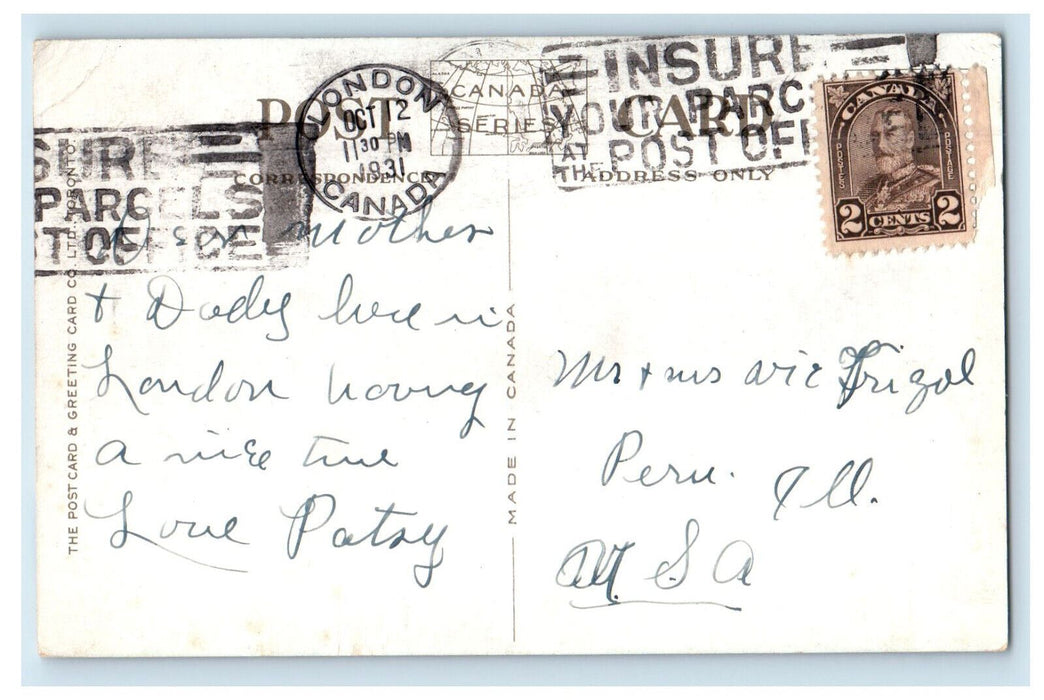 POST CARD
CANADA
SERIES
CORRESPONDENCE
ADDRESS ONLY
LONDON
OCT 12
11 30 PM
1931
CANADA
INSURE
YOUR PARC
AT
THE POST OFFI
SURE
PARCELS
ST OFFICE
CANADA
POSTES
POSTAGE
2 CENTS 2
THE POST CARD & GREETING CARD CO. LTD. TORONTO.
MADE IN CANADA
Dear Mother
+ Dady here in
London having
a nice time
Love Patsy
Mr + Mrs Vic Frizol
Peru. Ill.
U. S A